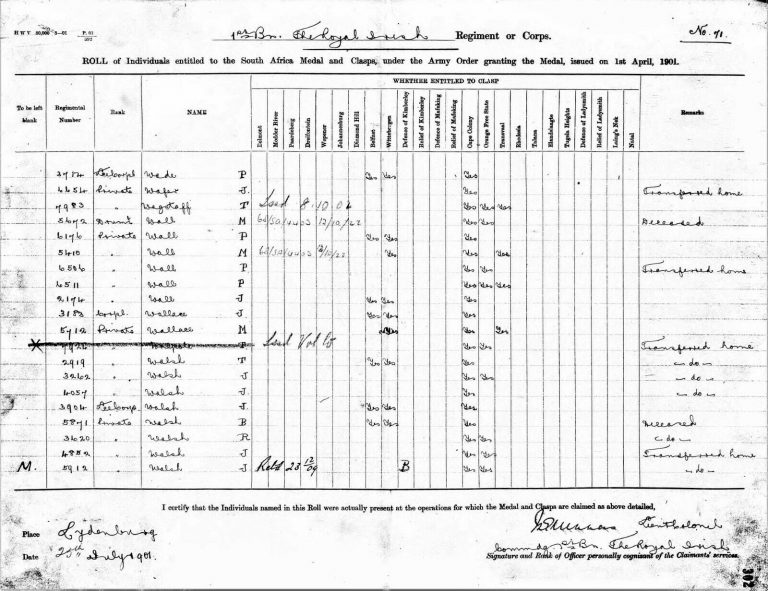 H W V 50,000 3—01 P. 61
1st Bn. The Royal Irish Regiment or Corps. No. 71.
ROLL of Individuals entitled to the South Africa Medal and Clasps, under the Army Order granting the Medal, issued on 1st April, 1901.
WHETHER ENTITLED TO CLASP
To be left blank Regimental Number Rank NAME Belmont Modder River Paardeberg Driefontein Wepener Johannesburg Diamond Hill Belfast Wittebergen Defence of Kimberley Relief of Kimberley Defence of Mafeking Relief of Mafeking Cape Colony Orange Free State Transvaal Rhodesia Talana Elandslaagte Tugela Heights Defence of Ladysmith Relief of Ladysmith Laing's Nek Natal Remarks
Wade P Yes Yes Yes
4454 Private Wafer J. Yes Transferred home
7983 " Wagstaff T Issd 8.10.02 Yes Yes Yes
5672 Wall M 68/Yes Yes Deceased
6176 Private Wall P Yes Yes Yes
5410 " Wall M Yes Yes Yes
6506 " Wall P Yes Yes Transferred home
6511 " Wall P Yes Yes Yes
2174 " Wall J Yes Yes Yes
3183 Corpl. Wallace J Yes Yes Yes
5712 Private Wallace M Yes Yes Yes
X P Issd Yes Yes Transferred home
2919 " Walsh T Yes Yes Yes — do —
3262 " Walsh J Yes Yes — do —
4057 " Walsh J Yes — do —
3904 Walsh J. Yes Yes Yes
5871 Private Walsh B Yes Yes Yes Deceased
3620 " Walsh R Yes Yes — do —
4852 " Walsh J Yes Yes Transferred home
M. 5912 " Walsh J Retd 23 12/09 B Yes Yes — do —
I certify that the Individuals named in this Roll were actually present at the operations for which the Medal and Clasps are claimed as above detailed,
Place Lydenburg Lieut Colonel
Date 25th July 1901. Commdg 1st Bn. The Royal Irish
Signature and Rank of Officer personally cognizant of the Claimants' services.
302